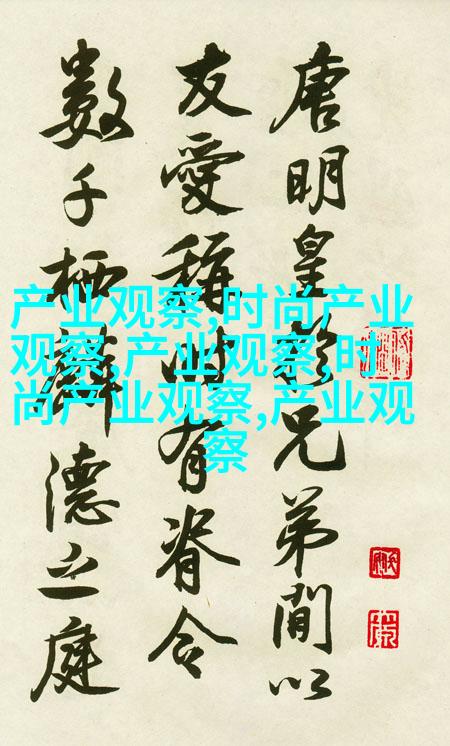 唐明皇於兄弟間以
友愛稱時有脊令
數千栖麟德之庭
产业观察,时尚产业
观察,产业观察,时
尚产业观察,产业观
察